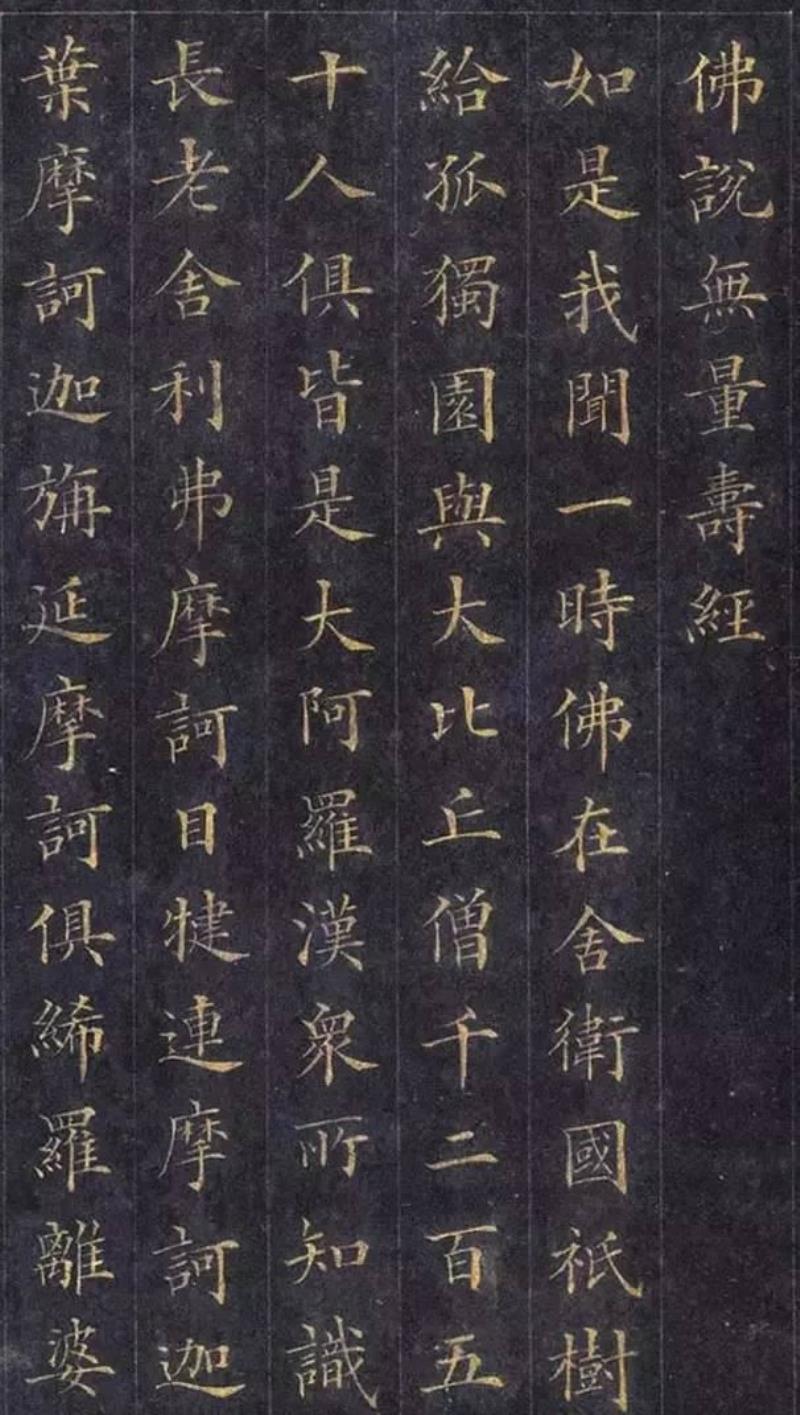 佛說無量壽經
如是我聞一時佛在舍衛國祇樹
給孤獨園與大比丘僧千二百五
十人俱皆是大阿羅漢衆所知識
長老舍利弗摩訶目犍連摩訶迦
葉摩訶迦旃延摩訶俱絺羅離婆